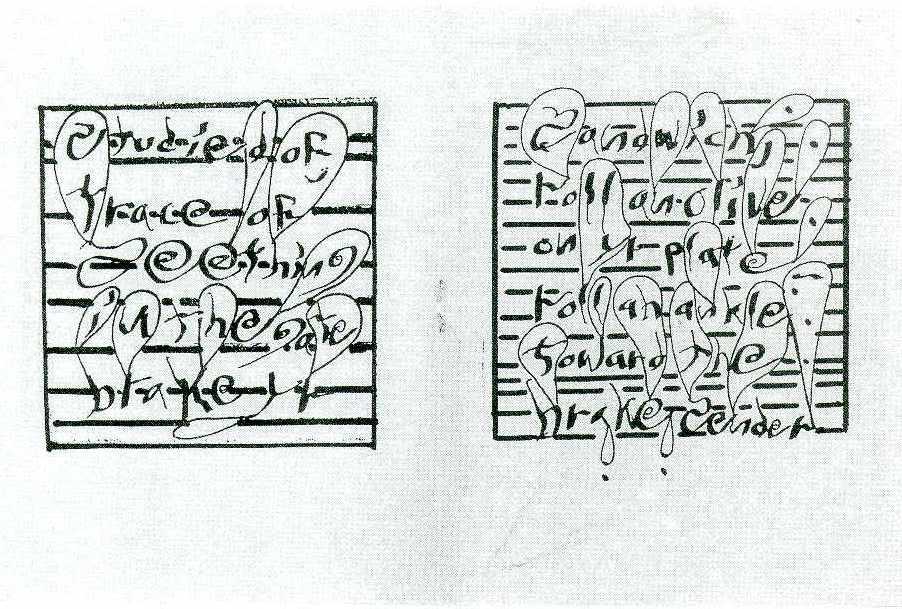 Studied of
trace of
Seething
in the gate
brake
Sandwich,
toll an olive
on yr plate
toll an ankle
toward the
brake